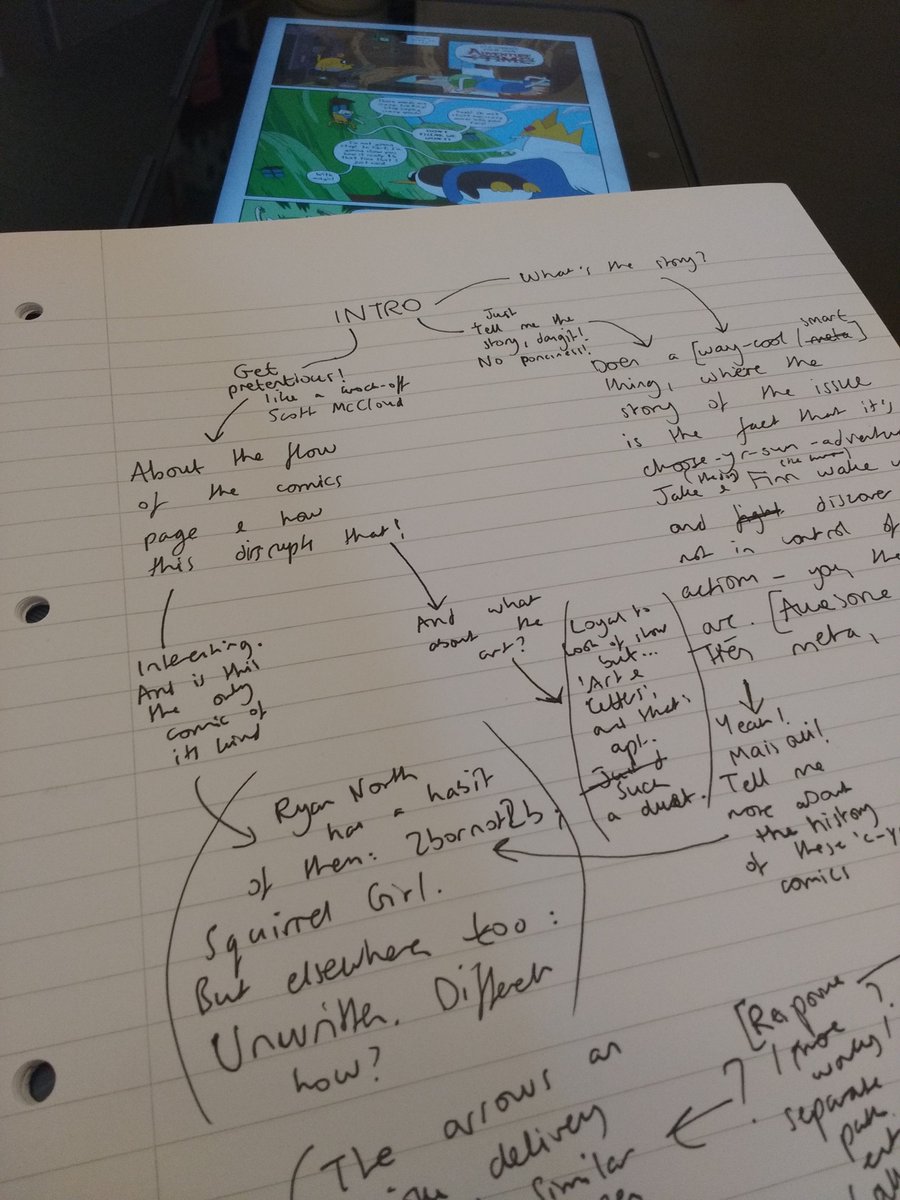 ADVENTURE
TIME
With
magic!
INTRO
What's the story?
Just
tell me the
story, dangit!
No ponciness!
Get
pretentious!
like a knock-off
Scott McCloud
About the flow
of the comics
page & how
this disrupts that!
Interesting.
And is this
the only
comic of
its kind
And what
about the
art?
smart
Does a [way-cool / meta]
thing, where the
story of the issue
is the fact that it's
choose-yr-own-adventure
Jake & Finn wake
(the dog) (the human)
and fight discover
not in control of
actions - you, the
are. [Awesome
meta,
Loyal to
look of show
but...
'Art &
letters',
and that's
apt.
Just
Such
a dust.
Yeah!
Mais oui!
Tell me
more about
the history
of these 'c-y
comics
Ryan North
has a habit
of them: 2bornot2b;
Squirrel Girl.
But elsewhere too:
Unwritten. Different
how?
[Response
?
1 more
works!
separate
path
The arrows as
delivery
similar
?